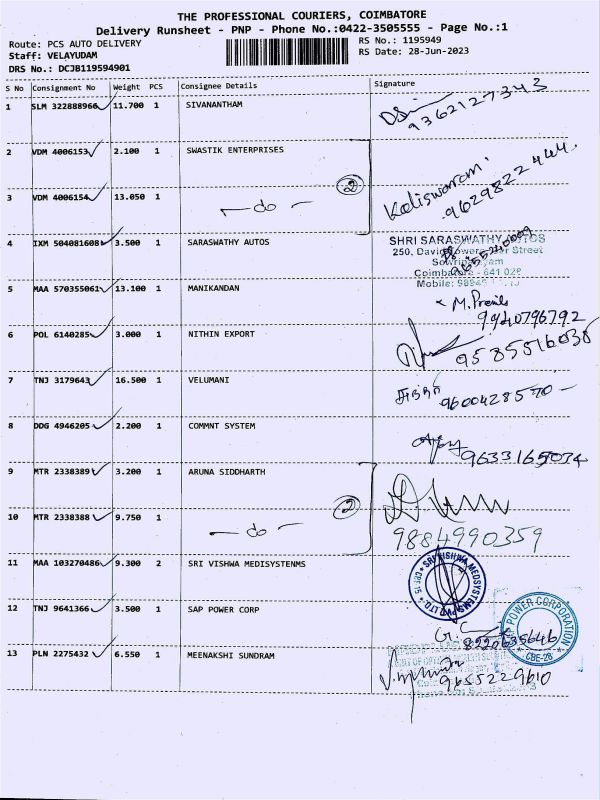 THE PROFESSIONAL COURIERS, COIMBATORE
Delivery Runsheet - PNP - Phone No.:0422-3505555 - Page No.:1
Route: PCS AUTO DELIVERY
RS No.: 1195949
Staff: VELAYUDAM
RS Date: 28-Jun-2023
DRS No.: DCJB119594901
S No Consignment No Weight PCS Consignee Details Signature
1 SLM 322888966 11.700 1 SIVANANTHAM
9362127343
2 VDM 4006153 2.100 1 SWASTIK ENTERPRISES
②
3 VDM 4006154 13.050 1 — do —
Kaliswarami
9629822444
4 IXM 504081608 3.500 1 SARASWATHY AUTOS
SHRI SARASWATHY AUTOS
Street
Coimbatore - 641 028
Mobile:
5 MAA 570355061 13.100 1 MANIKANDAN
9940796792
6 POL 6140285 3.000 1 NITHIN EXPORT
9585516038
7 TNJ 3179643 16.500 1 VELUMANI
9600428570 —
8 DDG 4946205 2.200 1 COMMNT SYSTEM
9633165034
9 MTR 2338389 3.200 1 ARUNA SIDDHARTH
②
10 MTR 2338388 9.750 1 — do —
9884990359
11 MAA 103270486 9.300 2 SRI VISHWA MEDISYSTENMS
SRI VISHWA MEDSYSTEMS PVT. LTD.
CBE-15
12 TNJ 9641366 3.500 1 SAP POWER CORP
POWER CORPORATION
CBE-28
8220635646
13 PLN 2275432 6.550 1 MEENAKSHI SUNDRAM
9655229610